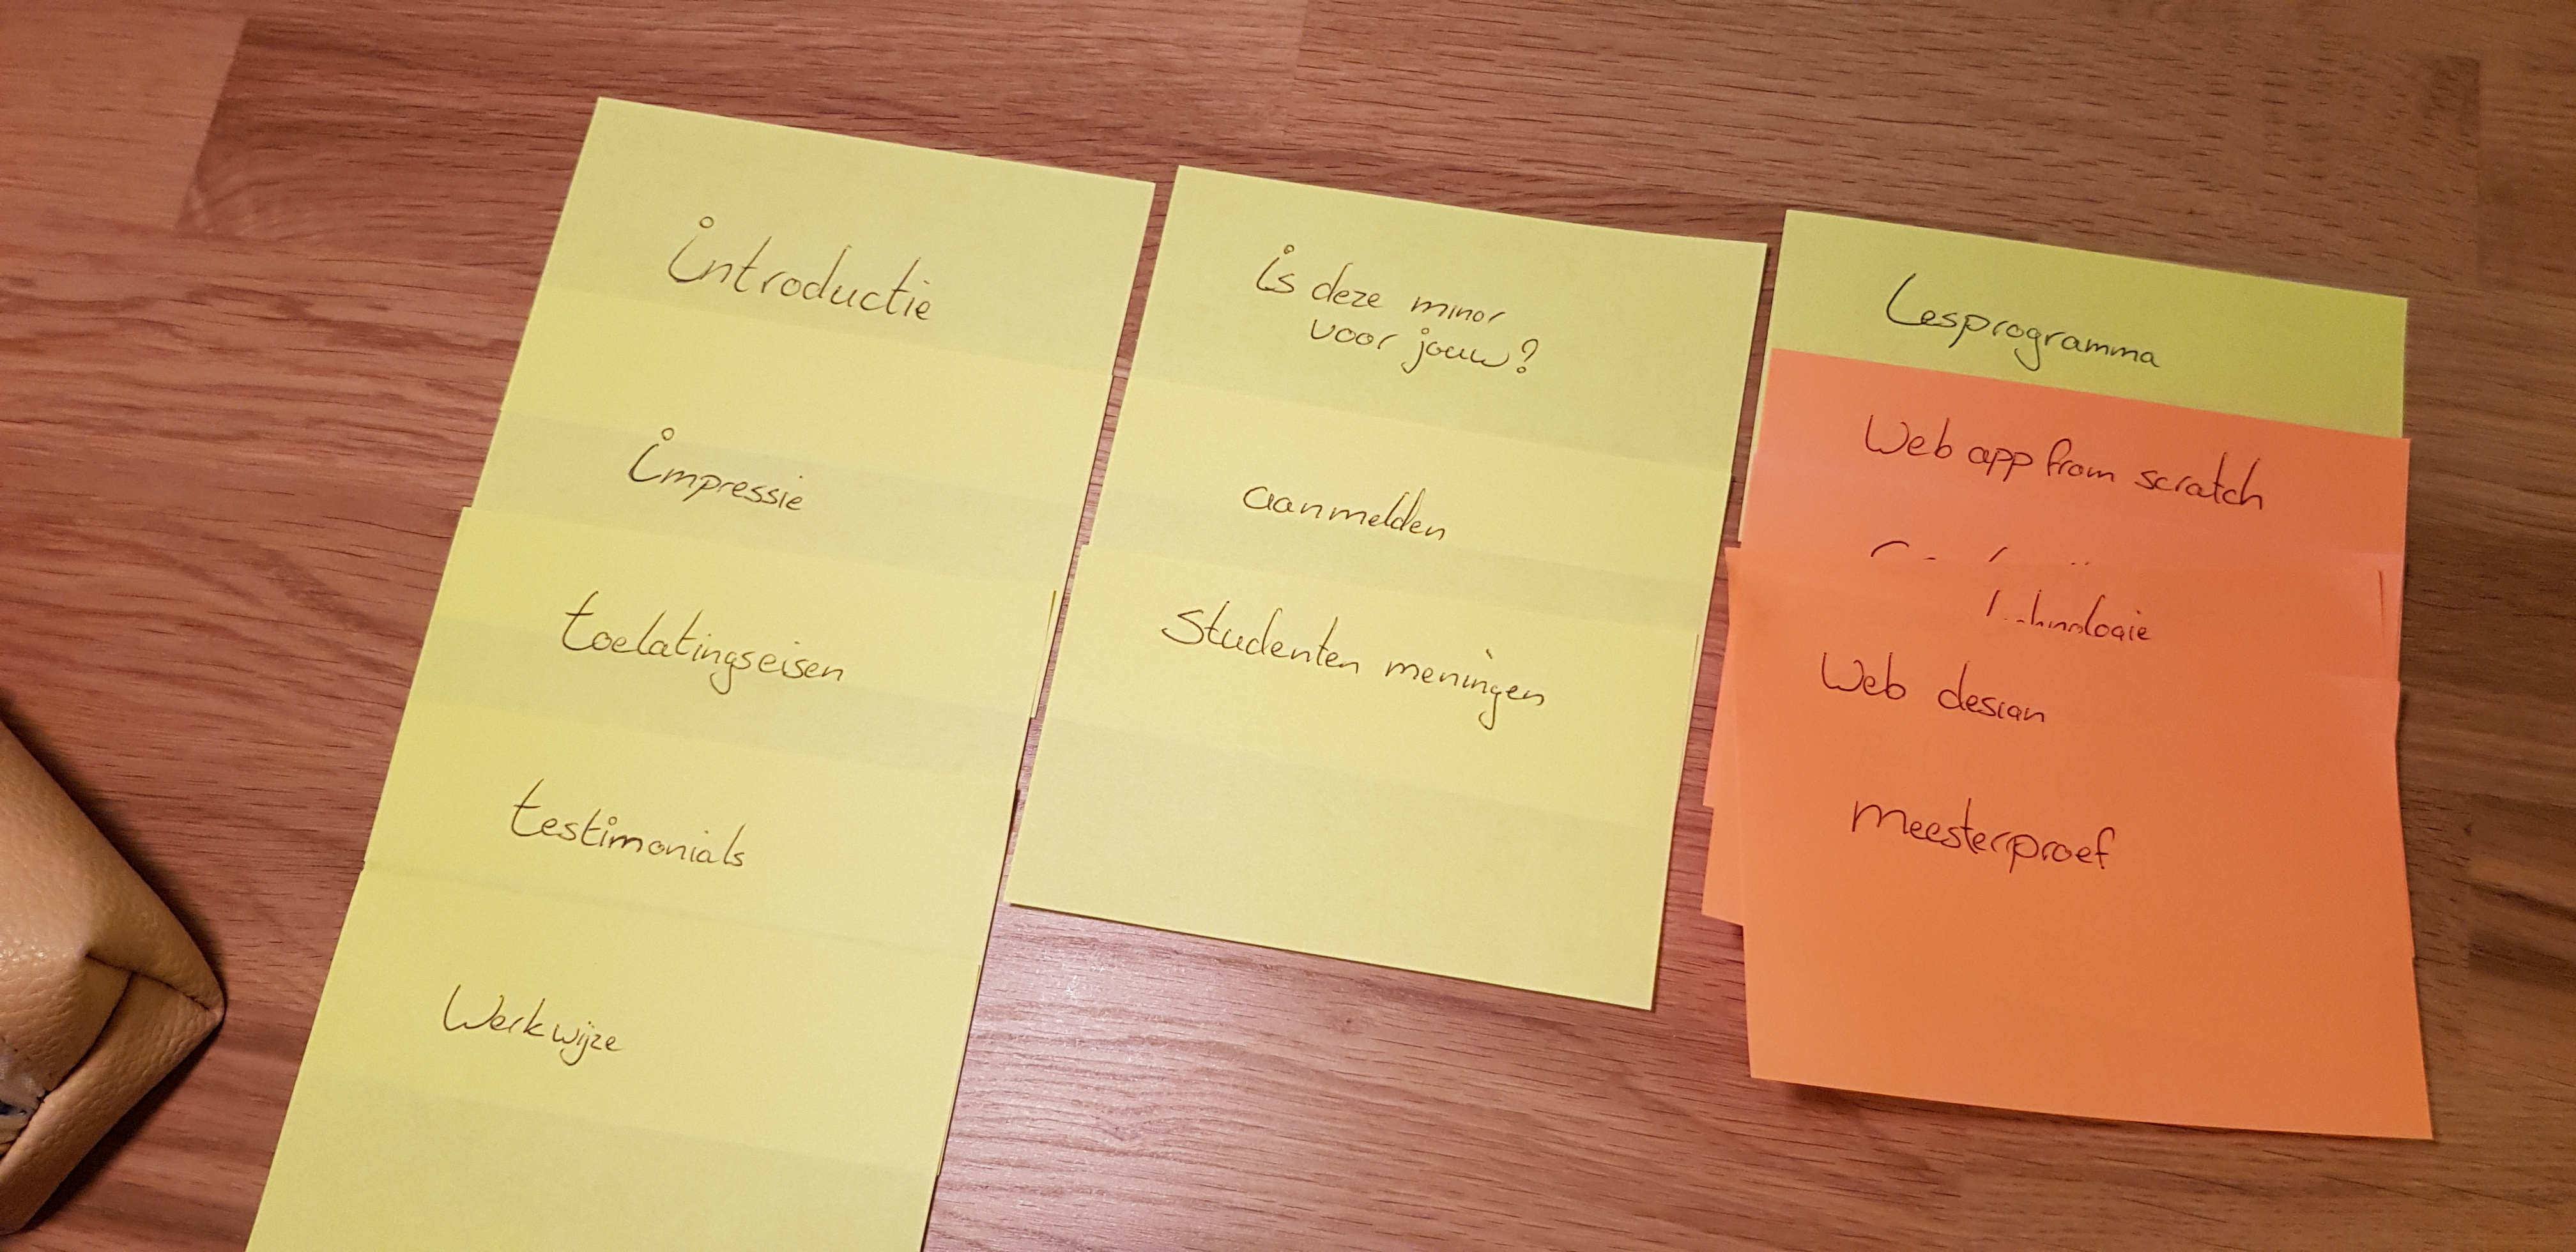 introductie
impressie
toelatingseisen
testimonials
Werkwijze
is deze minor
voor jouw?
aanmelden
Studenten meningen
Lesprogramma
Web app from scratch
Web design
meesterproef